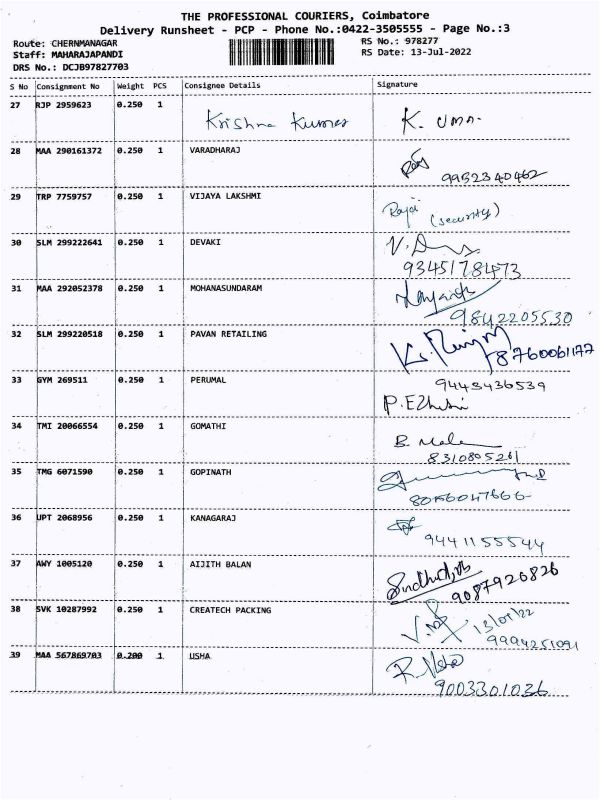 THE PROFESSIONAL COURIERS, Coimbatore
Delivery Runsheet - PCP - Phone No.:0422-3505555 - Page No.:3
Route: CHERNMANAGAR RS No.: 978277
Staff: MAHARAJAPANDI RS Date: 13-Jul-2022
DRS No.: DCJB97827703
S No Consignment No Weight PCS Consignee Details Signature
27 RJP 2959623 0.250 1 Krishna Kumar K. Uma
28 MAA 290161372 0.250 1 VARADHARAJ
9952340462
29 TRP 7759757 0.250 1 VIJAYA LAKSHMI
Rajai (security)
30 SLM 299222641 0.250 1 DEVAKI
9345178473
31 MAA 292052378 0.250 1 MOHANASUNDARAM
9842205530
32 SLM 299220518 0.250 1 PAVAN RETAILING
8760061177
33 GYM 269511 0.250 1 PERUMAL 9443436539
34 TMI 20066554 0.250 1 GOMATHI
8310805261
35 TMG 6071590 0.250 1 GOPINATH
8056047666
36 UPT 2068956 0.250 1 KANAGARAJ
9441155544
37 AWY 1005120 0.250 1 AIJITH BALAN
9087920826
38 SVK 10287992 0.250 1 CREATECH PACKING
13/07/22
9994251091
39 MAA 567869703 0.200 1 USHA R. Usha
9003301036